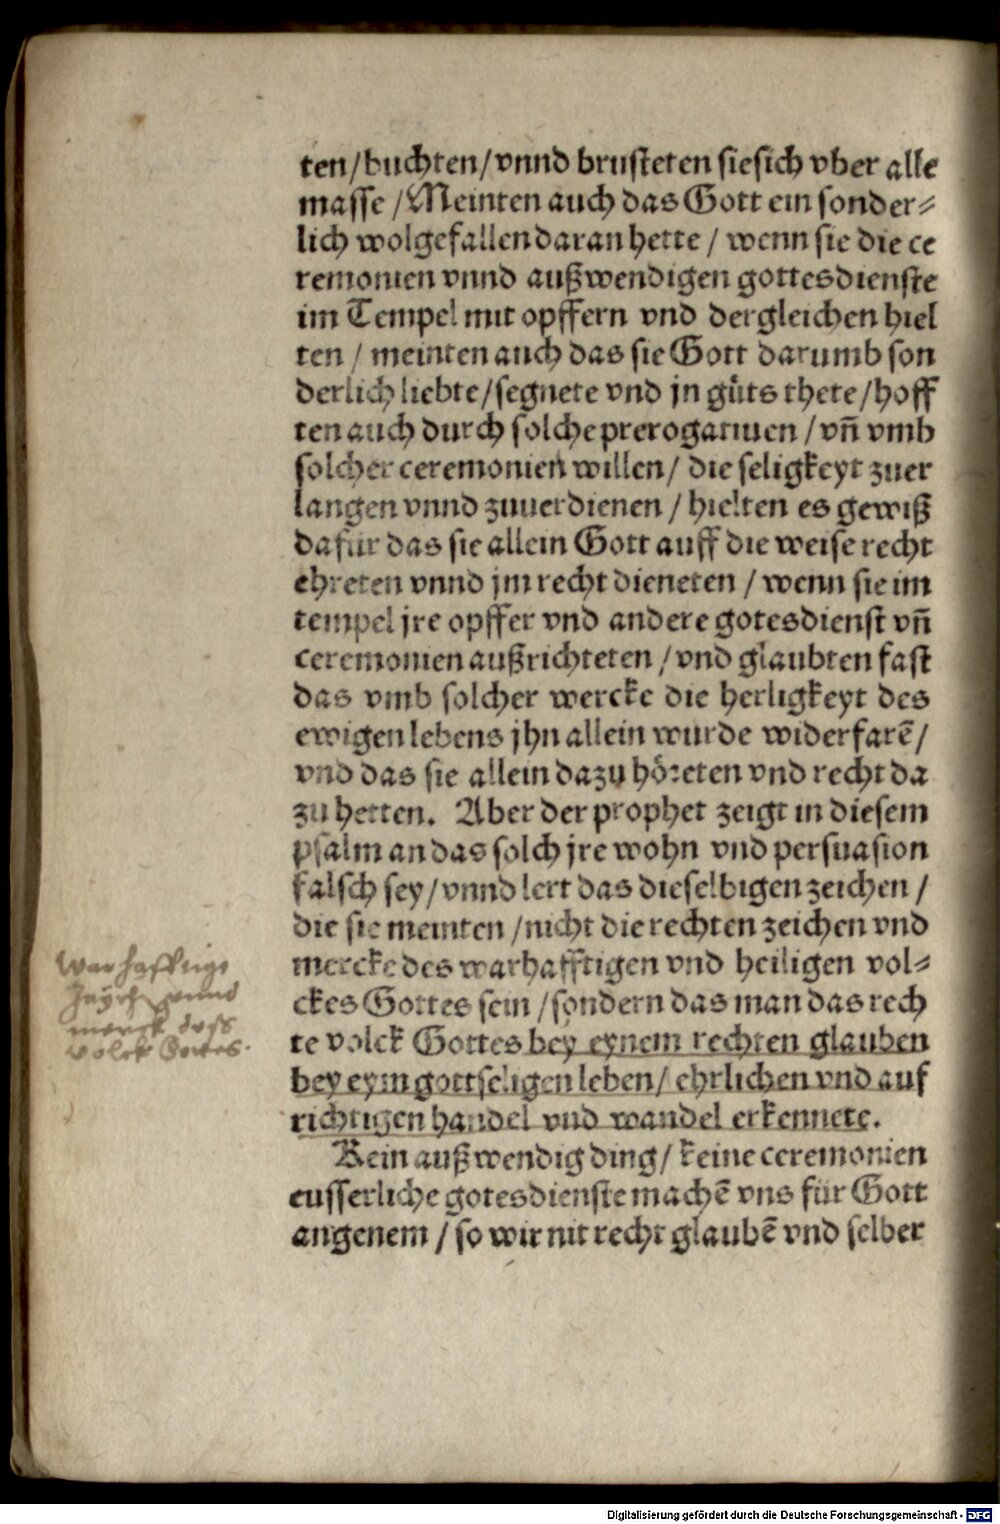 ten/buchten/vnnd brusteten siesich vber alle
masse/Meinten auch das Gott ein sonder⸗
lich wolgefallen daran hette/ wenn sie die ce
remonien vnnd außwendigen gottesdienste
im Tempel mit opffern vnd dergleichen hiel
ten/ meinten auch das sie Gott darumb son
derlich liebte/segnete vnd jn gůts thete/hoff
ten auch durch solche prerogatiuen/vñ vmb
solcher ceremonien willen/ die seligkeyt zuer
langen vnnd zuuerdienen/hielten es gewiß
dafür das sie allein Gott auff die weise recht
ehreten vnnd jm recht dieneten/ wenn sie im
tempel jre opffer vnd andere gotesdienst vñ
ceremonien außrichteten/vnd glaubten fast
das vmb solcher wercke die herligkeyt des
ewigen lebens jhn allein wurde widerfarē/
vnd das sie allein dazu höreten vnd recht da
zu hetten. Aber der prophet zeigt in diesem
psalm an das solch jre wohn vnd persuasion
falsch sey/vnnd lert das dieselbigen zeichen/
die sie meinten/nicht die rechten zeichen vnd
mercke des warhafftigen vnd heiligen vol⸗
ckes Gottes sein/sondern das man das rech
te volck Gottes bey eynem rechten glauben
bey eym gottseligen leben/ ehrlichen vnd auf
richtigen handel vnd wandel erkennete.
Kein außwendig ding/ keine ceremonien
eusserliche gotesdienste machē vns für Gott
angenem/so wir nit recht glaubē vnd selber
Warhafftige
vnnd
merck dess
volck Gottes.
Digitalisierung gefördert durch die Deutsche Forschungsgemeinschaft - DFG